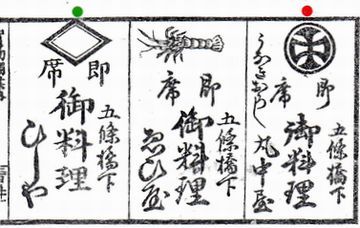 五條橋下
即席
御料理
丸中屋
五條橋下
即席
御料理
ゑひ屋
五條橋下
即席
御料理
ひしや